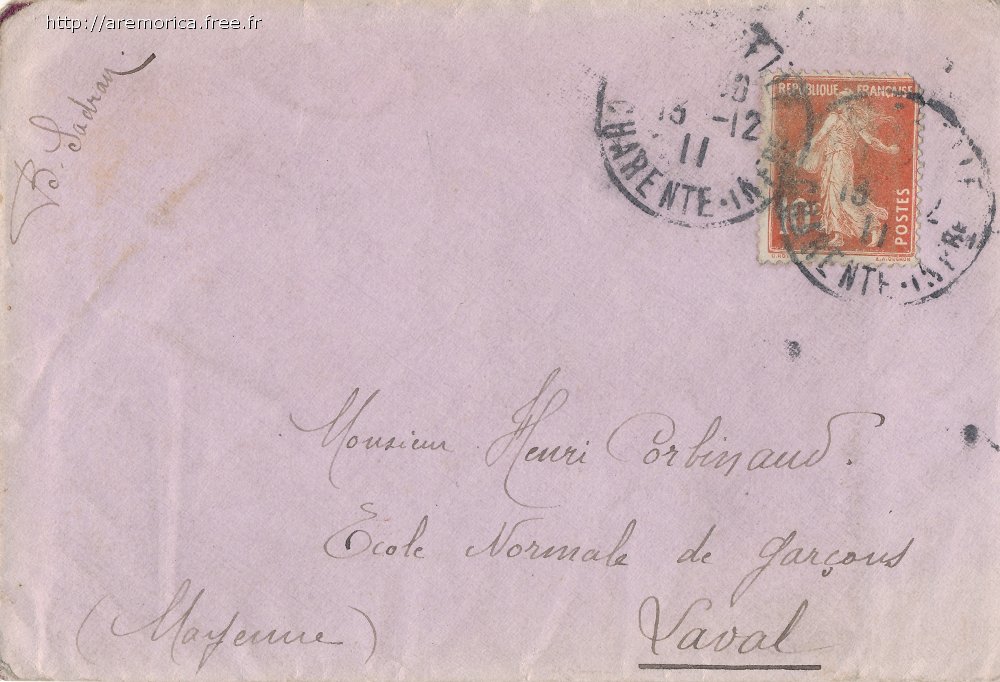 http://aremorica.free.fr
Sadran
10
13 -12
11
CHARENTE-INFRE
REPUBLIQUE FRANÇAISE
10c
POSTES
13
11
CHARENTE-INFRE
Monsieur Henri Corbinaud.
Ecole Normale de garçons
(Mayenne) Laval